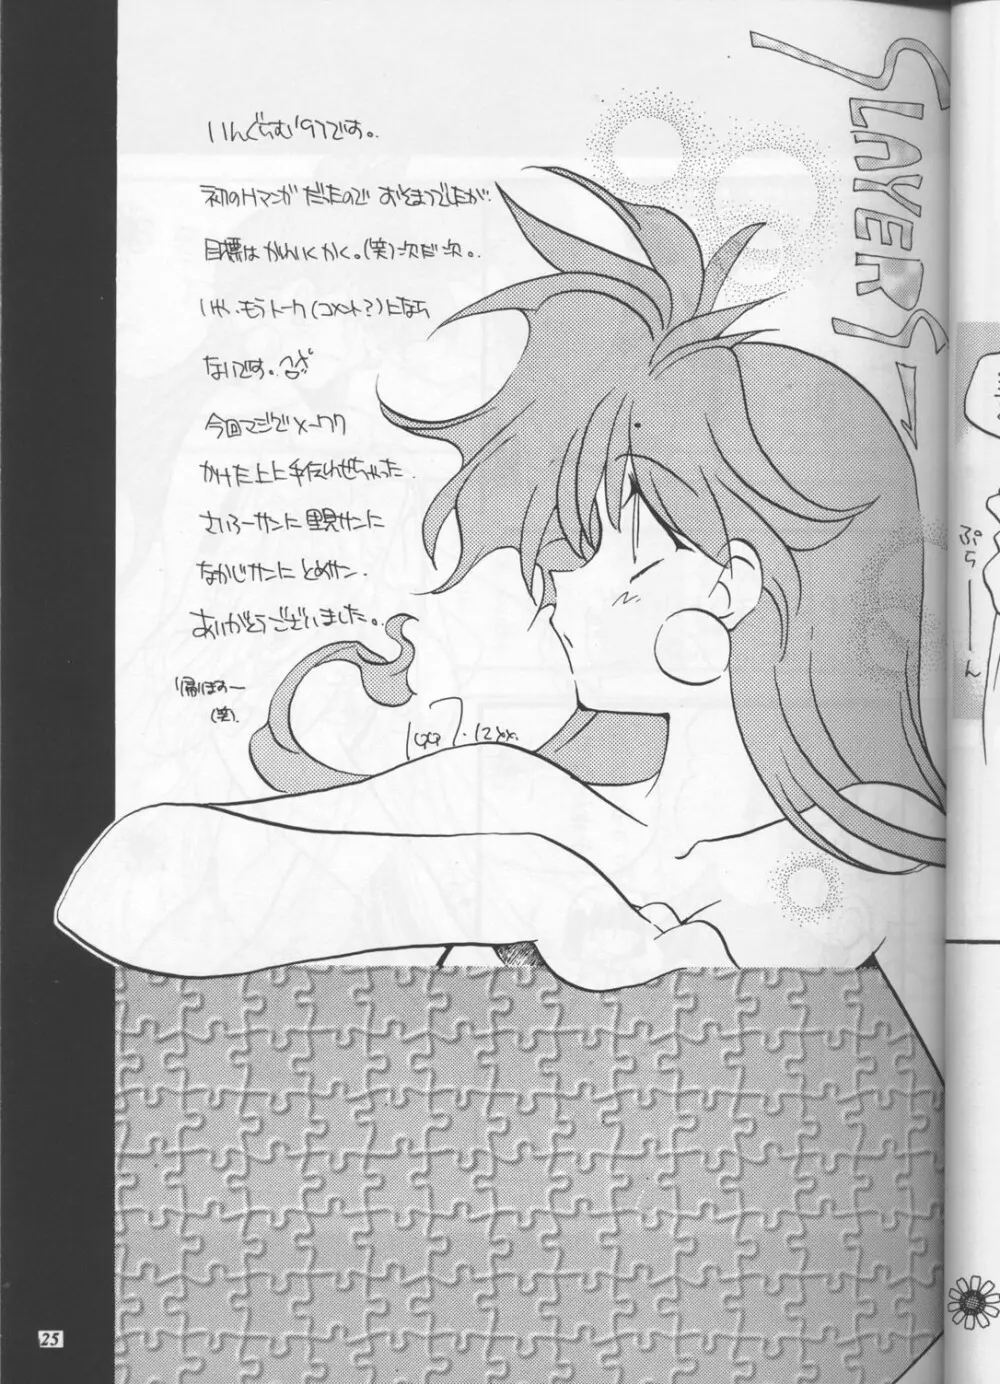 SLAYERS
いんぐらむ'97です。
初のHマンガだったので おそまつでしたが
目標はがんにくかく。(笑)次だ次。
いや、もうトーク(コメント?)になら
ないです。
今回マジでメーワク
かけた上に手伝いせちゃった
さいろーサンに里見サンに
なかじサンにとめサン.
ありがとうございました。
帰ほすー
(笑).
1997.12xx.
ぷらーーん
25